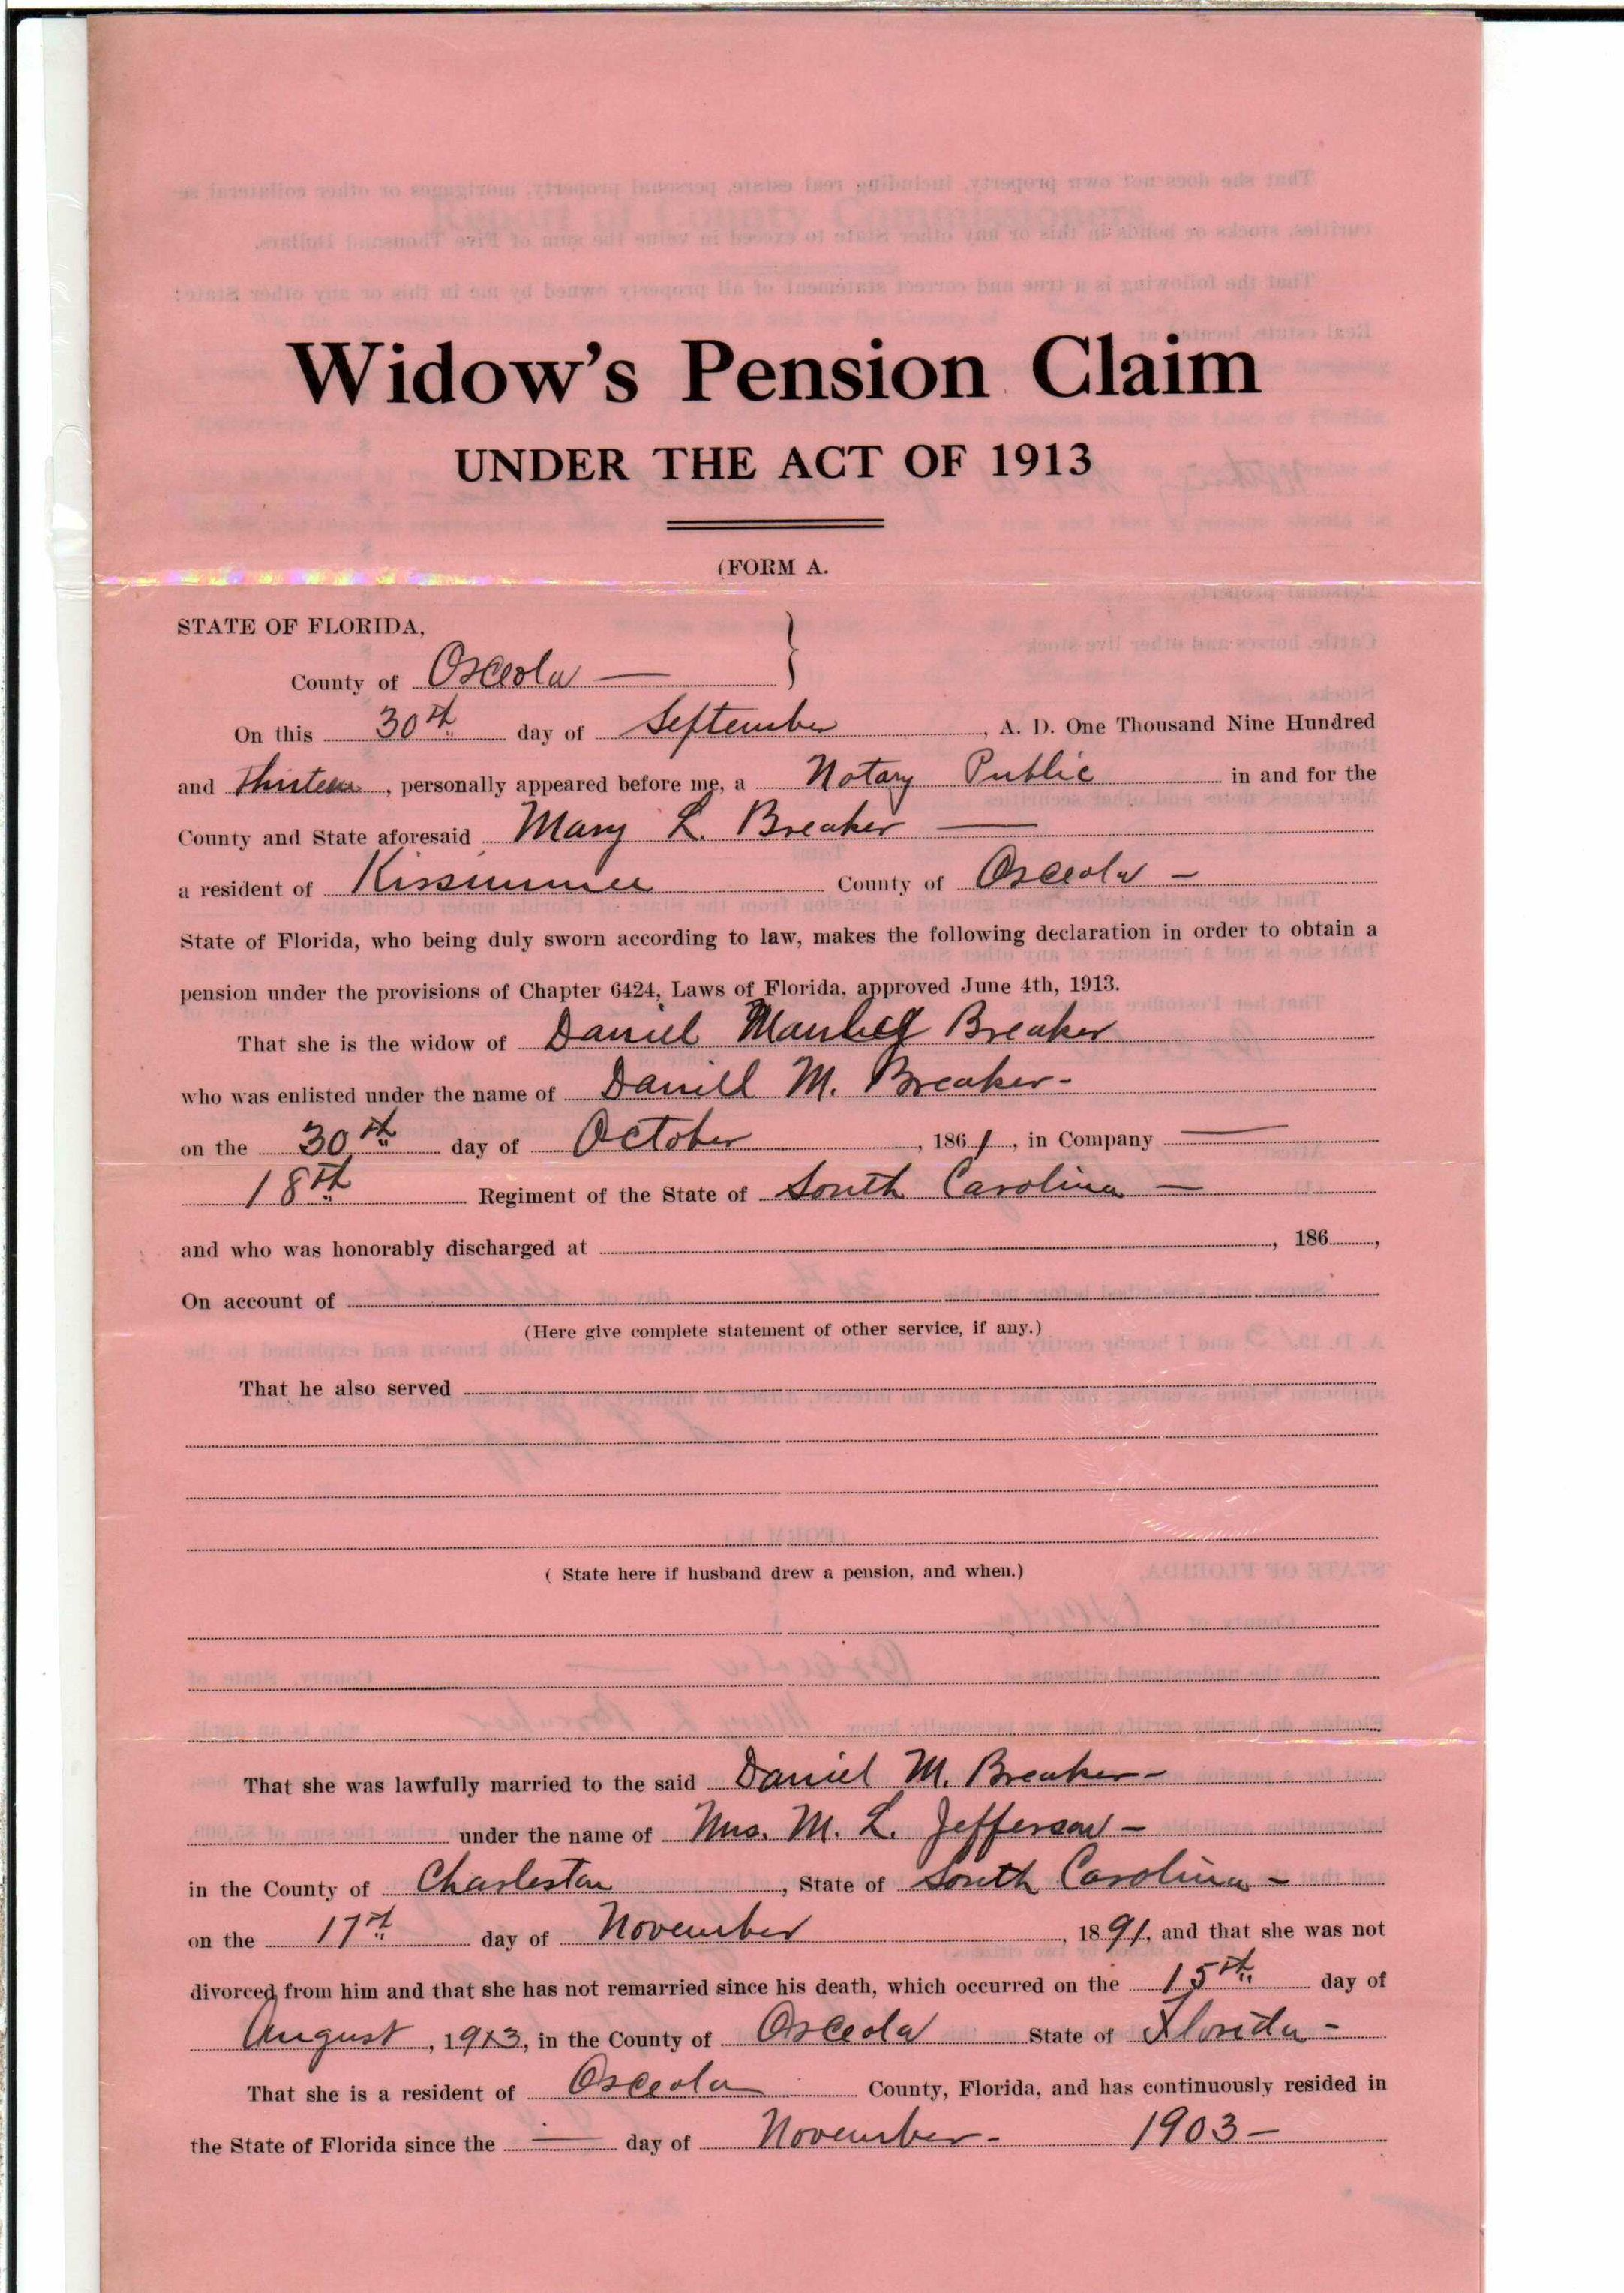 Widow's Pension Claim
UNDER THE ACT OF 1913
(FORM A.
STATE OF FLORIDA,
County of Osceola —
On this 30th day of September, A. D. One Thousand Nine Hundred
and Thirteen, personally appeared before me, a Notary Public in and for the
County and State aforesaid Mary L. Breaker —
a resident of Kissimmee County of Osceola —
State of Florida, who being duly sworn according to law, makes the following declaration in order to obtain a
pension under the provisions of Chapter 6424, Laws of Florida, approved June 4th, 1913.
That she is the widow of Daniel Breaker
who was enlisted under the name of Daniell M. Breaker-
on the 30th day of October, 1861, in Company —
18th Regiment of the State of South Carolina —
and who was honorably discharged at , 186 ,
On account of
(Here give complete statement of other service, if any.)
That he also served
( State here if husband drew a pension, and when.)
That she was lawfully married to the said Daniel M. Breaker-
under the name of Mrs. M. L. Jefferson -
in the County of Charleston, State of South Carolina -
on the 17th day of November, 1891, and that she was not
divorced from him and that she has not remarried since his death, which occurred on the 15th day of
August, 1913, in the County of Osceola State of Florida -
That she is a resident of Osceola County, Florida, and has continuously resided in
the State of Florida since the — day of November- 1903 —